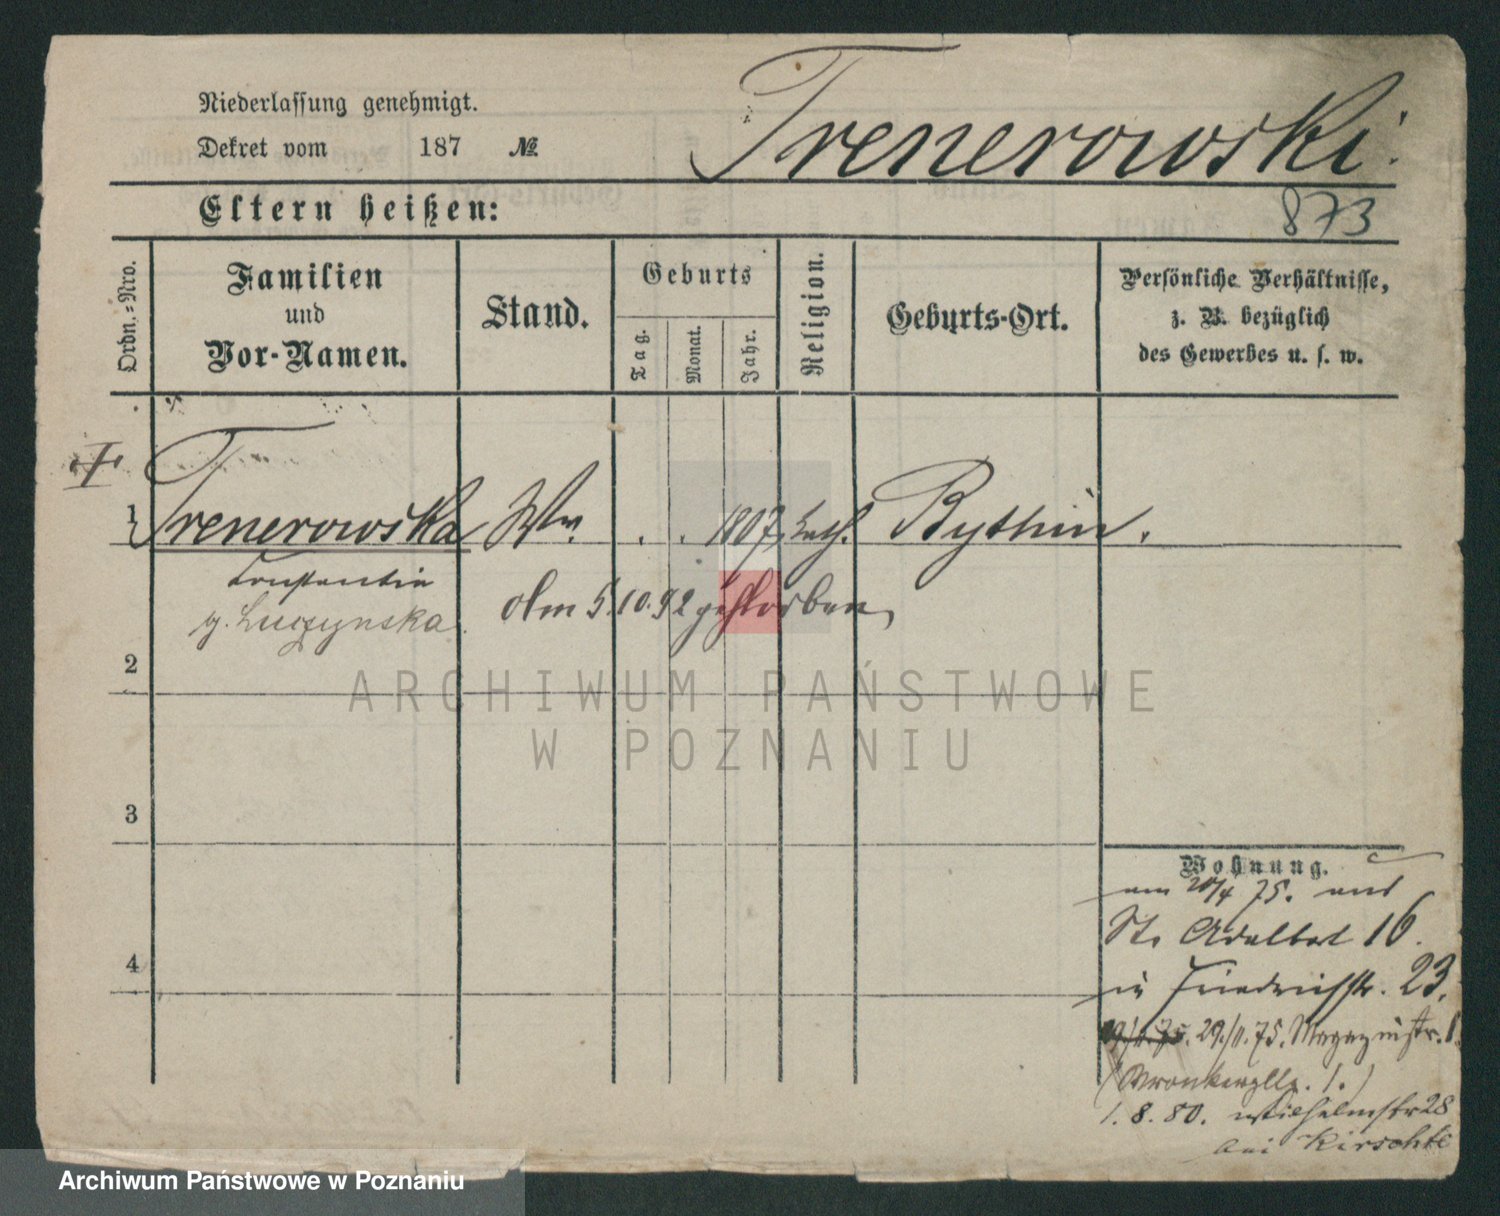 Niederlassung genehmigt.
Dekret vom 187 №
Trenerowski.
Eltern heißen:
873
Ordn.-Nro.
Familien
und
Vor-Namen.
Stand.
Geburts
Tag.
Monat.
Jahr.
Religion.
Geburts-Ort.
Persönliche Verhältnisse,
z. B. bezüglich
des Gewerbes u. s. w.
1 Trenerowska Ww. . . 1807. kath. Bythin.
Constantia
g. Luczynska.
am 5.10.92 gestorben
2
3
4
ARCHIWUM PAŃSTWOWE
W POZNANIU
Wohnung.
am 20/4 75. aus
St. Adalbert 16.
in Friedrichstr. 23.
29./11.75. Magazinstr. 1.
(Wronkerpl. 1.)
1. 8. 80. Wilhelmstr 28
bei Kirschte
Archiwum Państwowe w Poznaniu